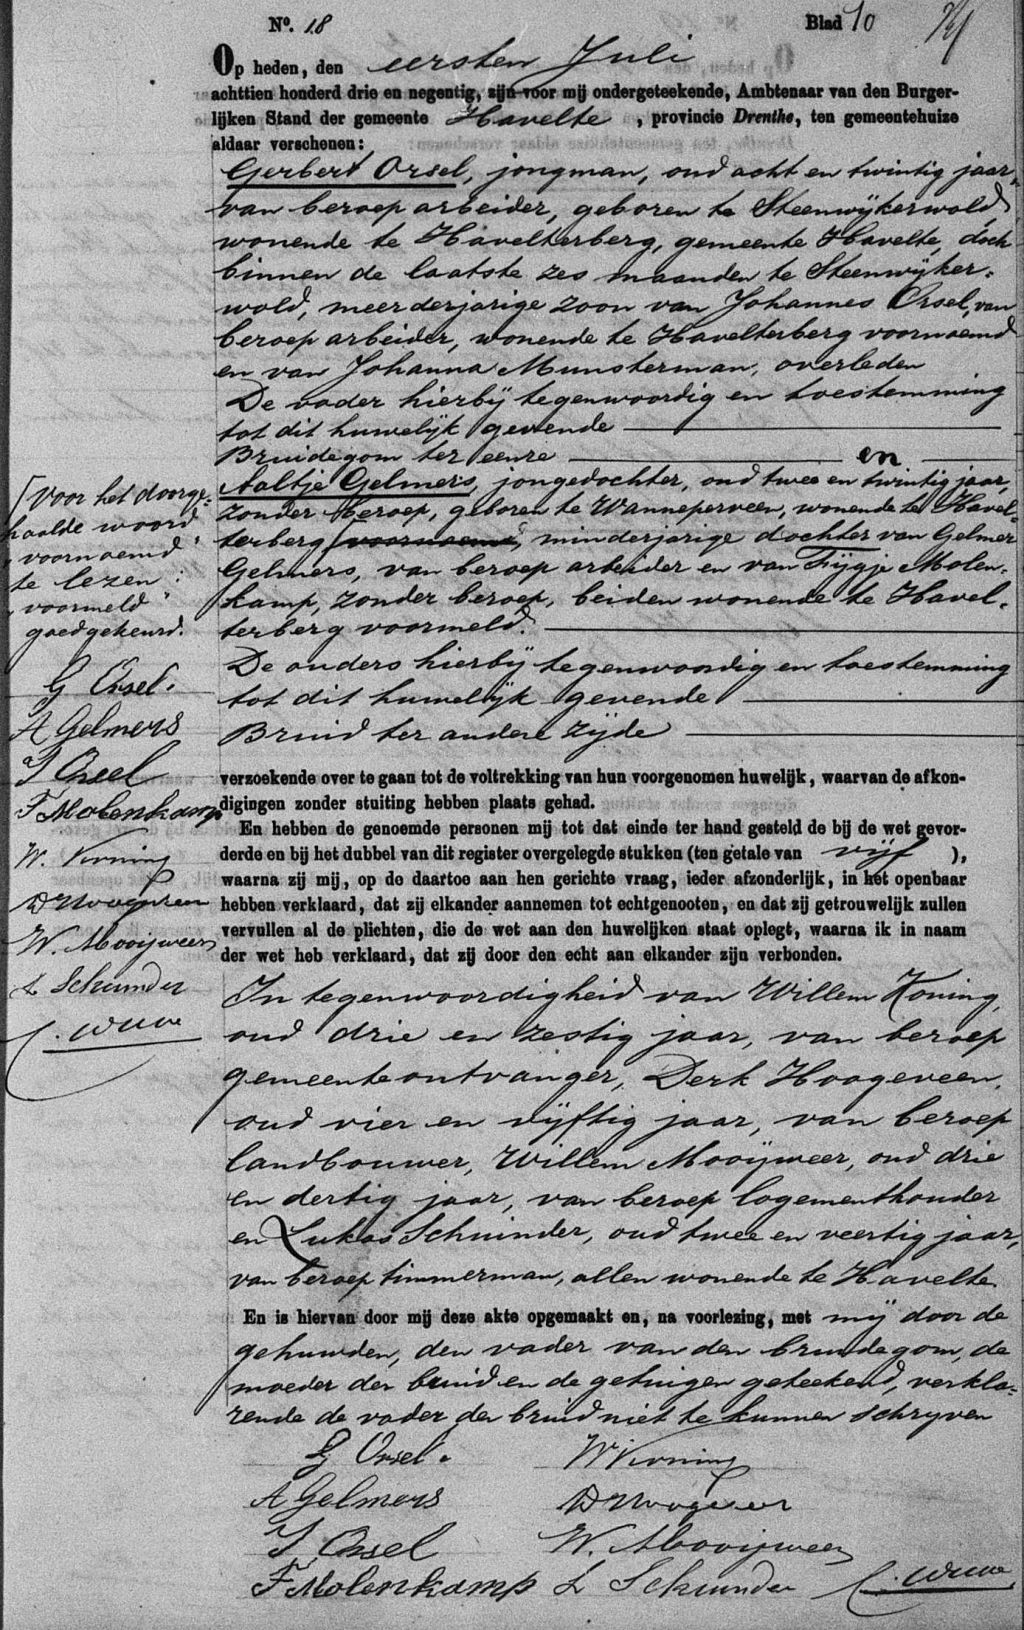 Nº. 18 Blad 10
Op heden, den eersten Juli
achttien honderd drie en negentig, zijn voor mij ondergeteekende, Ambtenaar van den Burger-
lijken Stand der gemeente Havelte, provincie Drenthe, ten gemeentehuize
aldaar verschenen:
Gerbert Orsel, jongman, oud acht en twintig jaar,
van beroep arbeider, geboren te Steenwijkerwold
wonende te Havelterberg, gemeente Havelte, doch
binnen de laatste zes maanden te Steenwijker-
wold, meerderjarige zoon van Johannes Orsel, van
beroep arbeider, wonende te Havelterberg voornoemd
en van Johanna Munsterman, overleden
De vader hierbij tegenwoordig en toestemming
tot dit huwelijk gevende
Bruidegom ter eenre en
Aaltje Gelmers, jongedochter, oud twee en twintig jaar,
zonder beroep, geboren te Wanneperveen, wonende te Havel-
terberg voornoemd, minderjarige dochter van Gelmer
Gelmers, van beroep arbeider en van Fijgje Molen-
kamp, zonder beroep, beiden wonende te Havel-
terberg voormeld.
De ouders hierbij tegenwoordig en toestemming
tot dit huwelijk gevende
Bruid ter andere zijde
verzoekende over te gaan tot de voltrekking van hun voorgenomen huwelijk, waarvan de afkon-
digingen zonder stuiting hebben plaats gehad.
En hebben de genoemde personen mij tot dat einde ter hand gesteld de bij de wet gevor-
derde en bij het dubbel van dit register overgelegde stukken (ten getale van vijf),
waarna zij mij, op de daartoe aan hen gerichte vraag, ieder afzonderlijk, in het openbaar
hebben verklaard, dat zij elkander aannemen tot echtgenooten, en dat zij getrouwelijk zullen
vervullen al de plichten, die de wet aan den huwelijken staat oplegt, waarna ik in naam
der wet heb verklaard, dat zij door den echt aan elkander zijn verbonden.
In tegenwoordigheid van Willem Koning,
oud drie en zestig jaar, van beroep
gemeenteontvanger, Derk Hoogeveen,
oud vier en vijftig jaar, van beroep
landbouwer, Willem Mooijweer, oud drie
en dertig jaar, van beroep logementhouder
en Lukas Schuinder, oud twee en veertig jaar,
van beroep timmerman, allen wonende te Havelte.
En is hiervan door mij deze akte opgemaakt en, na voorlezing, met mij door de
gehuwden, den vader van den bruidegom, de
moeder der bruid en de getuigen geteekend, verkla-
rende de vader der bruid niet te kunnen schrijven
G Orsel. W Koning
A Gelmers D Hoogeveen
J Orsel W. Mooijweer
F Molenkamp L Schuinder
Voor het doorge-
haalde woord
"voornoemd"
te lezen:
"voormeld"
goedgekeurd.
G Orsel.
A Gelmers
J Orsel
F Molenkamp
W. Koning
D Hoogeveen
W. Mooijweer
L Schuinder